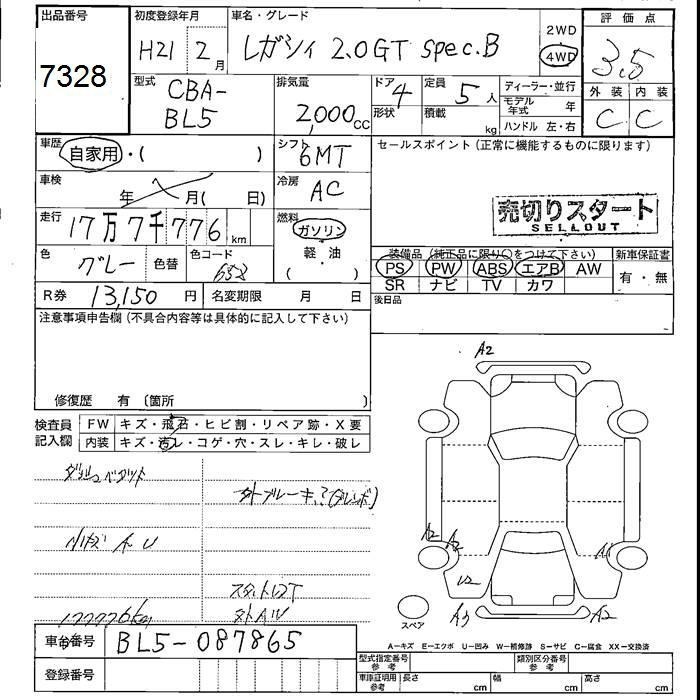 出品番号
7328
初度登録年月
H21 2月
車名・グレード
レガシィ 2.0GT spec.B
2WD
4WD
評価点
3.5
外装 内装
C C
型式
CBA-
BL5
排気量
2,000cc
ドア 4
形状
定員 5人
積載 kg
ディーラー・並行
モデル年式 年
ハンドル 左・右
車歴
自家用・( )
シフト
6MT
セールスポイント(正常に機能するものに限ります)
車検
年 月(日)
冷房
AC
売切りスタート
SELLOUT
走行
17万7千776km
燃料
ガソリン
軽・油
( )
色
グレー
色替
色コード
装備品(純正品に限り○をつけて下さい)
新車保証書
PS PW ABS エアB AW
SR ナビ TV カワ
有・無
R券 13,150円
名変期限 月 日
後日品
注意事項申告欄(不具合内容等は具体的に記入して下さい)
修復歴 有 〔箇所 〕
検査員
記入欄
FW キズ・飛石・ヒビ割・リペア跡・X要
内装 キズ・汚レ・コゲ・穴・スレ・キレ・破レ
A2
外ブレーキ
A2
A2
A1
U2
A3
A2
177776km
外AW
スペア
A−キズ E−エクボ U−凹み W−補修跡 S−サビ C−腐食 XX−交換済
車台番号
BL5-087865
登録番号
型式指定番号
参考
類別区分番号
参考
車庫証明用
参考
長さ cm
幅 cm
高さ cm